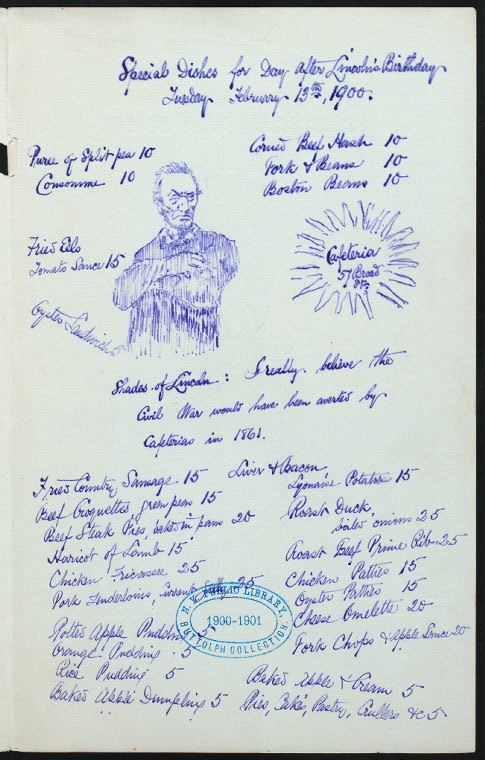 Special Dishes for Day after Lincoln's Birthday
Tuesday February 13th, 1900.
Puree of Split pea 10
Consomme 10
Corned Beef Hash 10
Pork & Beans 10
Boston Beans 10
Fried Eels
Tomato Sauce 15
Oyster Sandwich 5
Cafeteria
57 Broad
St.
Shades of Lincoln: I really believe the
Civil War would have been averted by
Cafeterias in 1861.
Fried Country Sausage 15
Beef Croquettes, green peas 15
Beef Steak Pies, baked in pans 20
Haricot of Lamb 15
Chicken Fricassee 25
Pork Tenderloins, Currant Jelly 25
Liver & Bacon
Lyonaise Potatoe 15
Roast Duck,
boiled onions 25
Roast Beef Prime Rib 25
Chicken Patties 15
Oyster Patties 15
Cheese Omelette 20
Pork Chops & Apple Sauce 20
Apple Pudding 5
Orange Pudding 5
Rice Pudding 5
Baked Apple Dumplings 5
Baked Apple & Cream 5
Pies, Cakes, Pastry, Crullers &c 5
N. Y. PUBLIC LIBRARY,
1900-1901
BUTTOLPH COLLECTION.